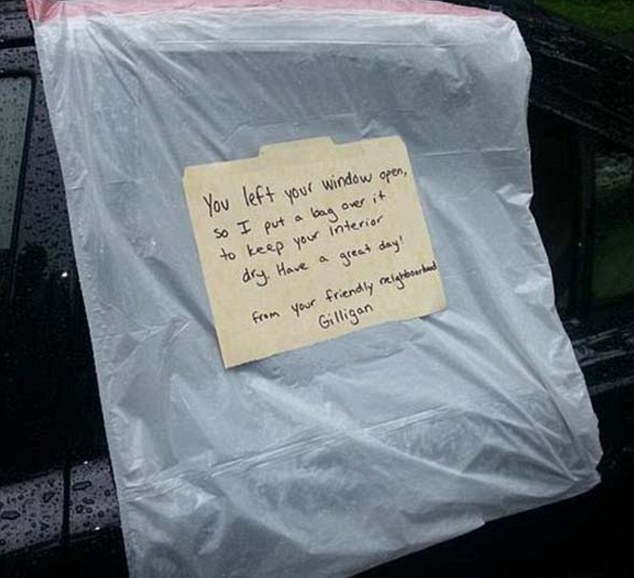 You left your window open,
so I put a bag over it
to keep your interior
dry. Have a great day!
from your friendly neighbourhood
Gilligan